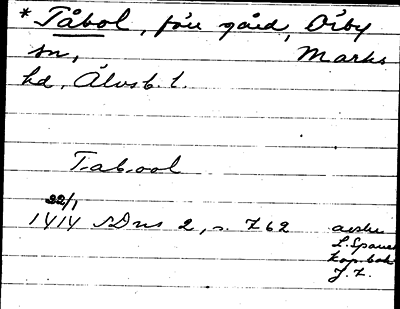 * Tåbol, förr gård, Örby
sn, Marks
hd, Älvsb. l.
Tabool
22/1
1414 SDns 2, s. 762 avskr
L. Sparres
kop.bok